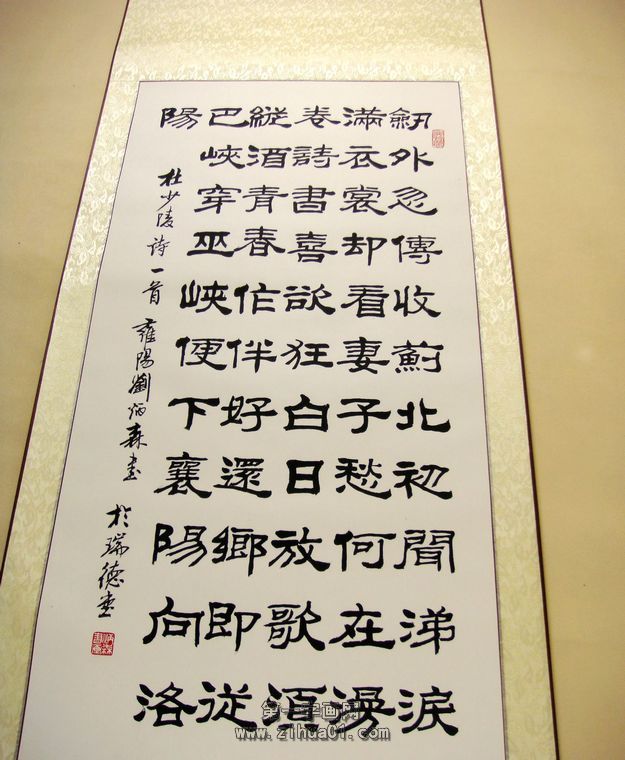 劒外忽傳收薊北初聞涕淚
滿衣裳却看妻子愁何在漫
卷詩書喜欲狂白日放歌湏
縱酒青春作伴好還鄉即從
巴峽穿巫峽便下襄陽向洛
陽
杜少陵詩一首 雍陽劉炳森書 於瑞德堂
第一字画网
www.zihua01.com